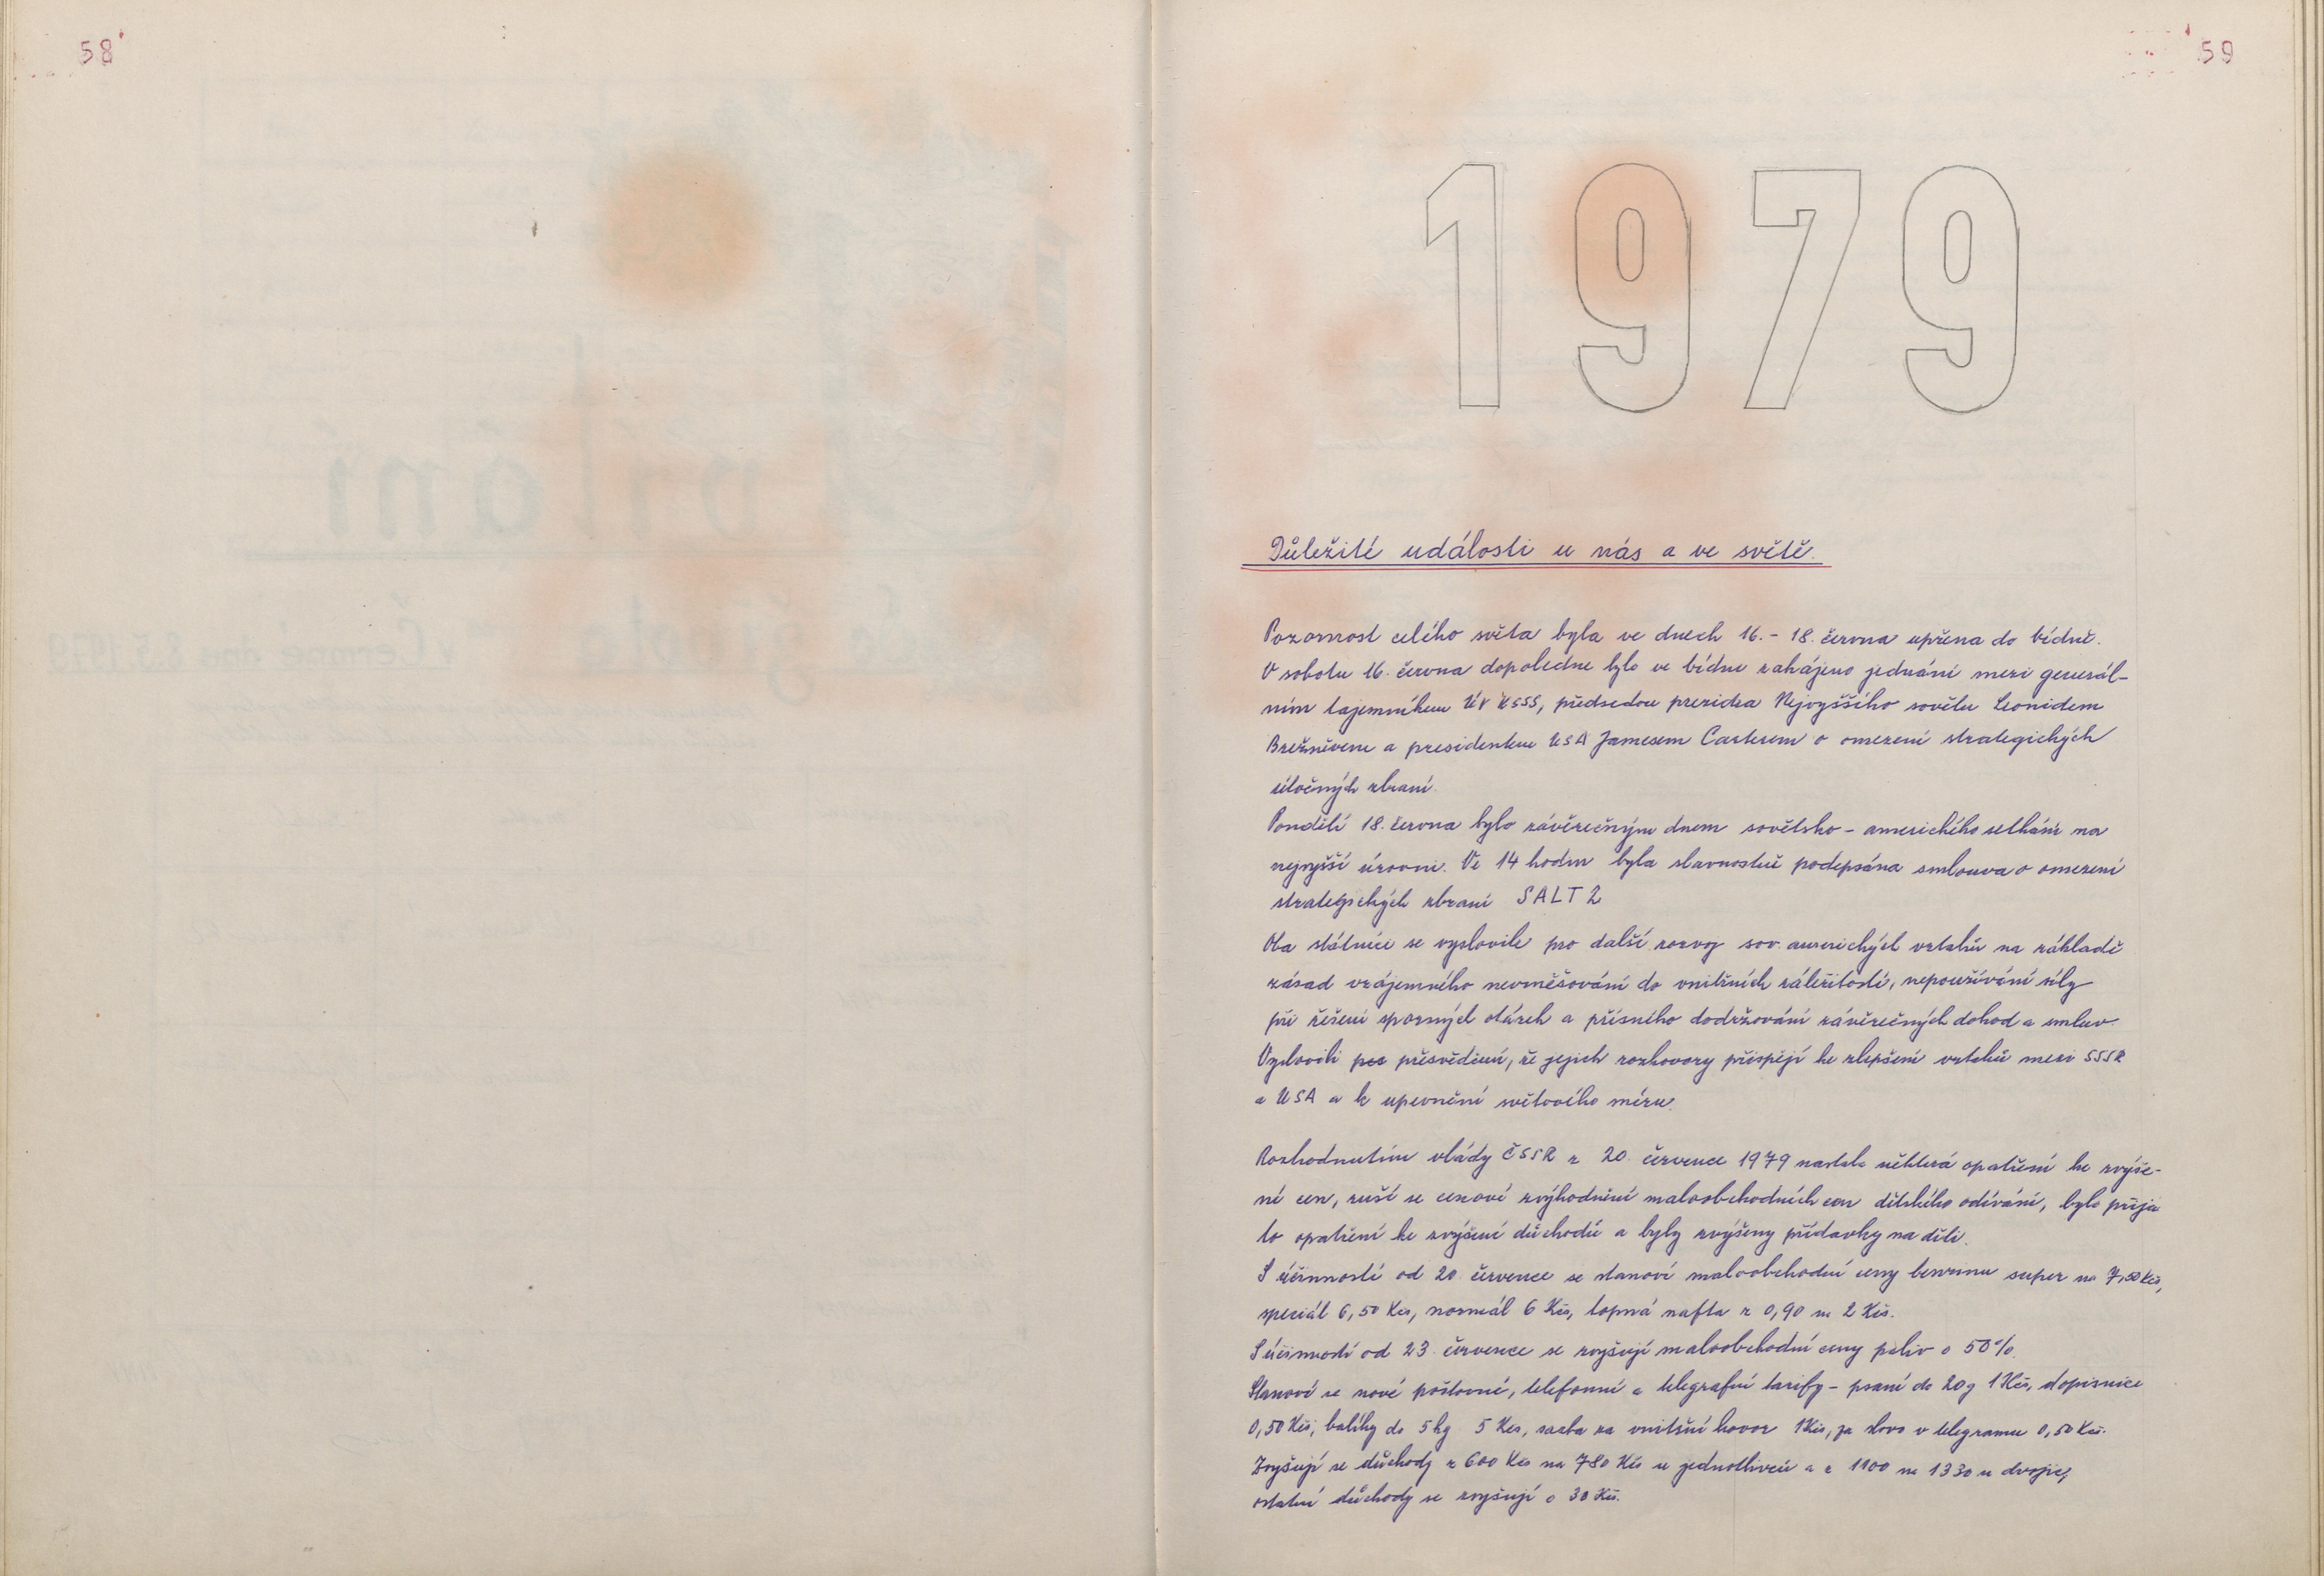 58
59
1979
Důležité události u nás a ve světě.
Pozornost celého světa byla ve dnech 16. - 18. června upřena do Vídně.
V sobotu 16. června dopoledne bylo ve Vídni zahájeno jednání mezi generál-
ním tajemníkem ÚV KSSS, předsedou prezidia Nejvyššího sovětu Leonidem
Brežněvem a presidentem USA Jamesem Carterem o omezení strategických
útočných zbraní.
Pondělí 18. června bylo závěrečným dnem sovětsko - amerického setkání na
nejvyšší úrovni. Ve 14 hodin byla slavnostně podepsána smlouva o omezení
strategických zbraní SALT 2
Oba státníci se vyslovili pro další rozvoj sov. amerických vztahů na základě
zásad vzájemného nevměšování do vnitřních záležitostí, nepoužívání síly
při řešení sporných otázek a přísného dodržování závěrečných dohod a smluv.
Vyslovili pos přesvědčení, že jejich rozhovory přispějí ke zlepšení vztahů mezi SSSR
a USA a k upevnění světového míru.
Rozhodnutím vlády ČSSR z 20. července 1979 nastala některá opatření ke zvýše-
ní cen, ruší se cenové zvýhodnění maloobchodních cen dětského odívání, bylo přija
to opatření ke zvýšení důchodů a byly zvýšeny přídavky na děti.
S účinností od 20. července se stanoví maloobchodní ceny benzinu super na 7,50 Kčs,
speciál 6,50 Kčs, normál 6 Kčs, topná nafta z 0,90 na 2 Kčs.
S účinností od 23. července se zvyšují maloobchodní ceny paliv o 50%.
Stanoví se nové poštovné, telefonní a telegrafní tarify - psaní do 20g 1 Kčs, dopisnice
0,50 Kčs, balíky do 5 kg 5 Kčs, sazba za vnitřní hovor 1 Kčs, za slovo v telegramu 0,50 Kčs.
Zvyšují se důchody z 600 Kčs na 780 Kčs u jednotlivců a z 1100 na 1330 u dvojic,
ostatní důchody se zvyšují o 30 Kčs.